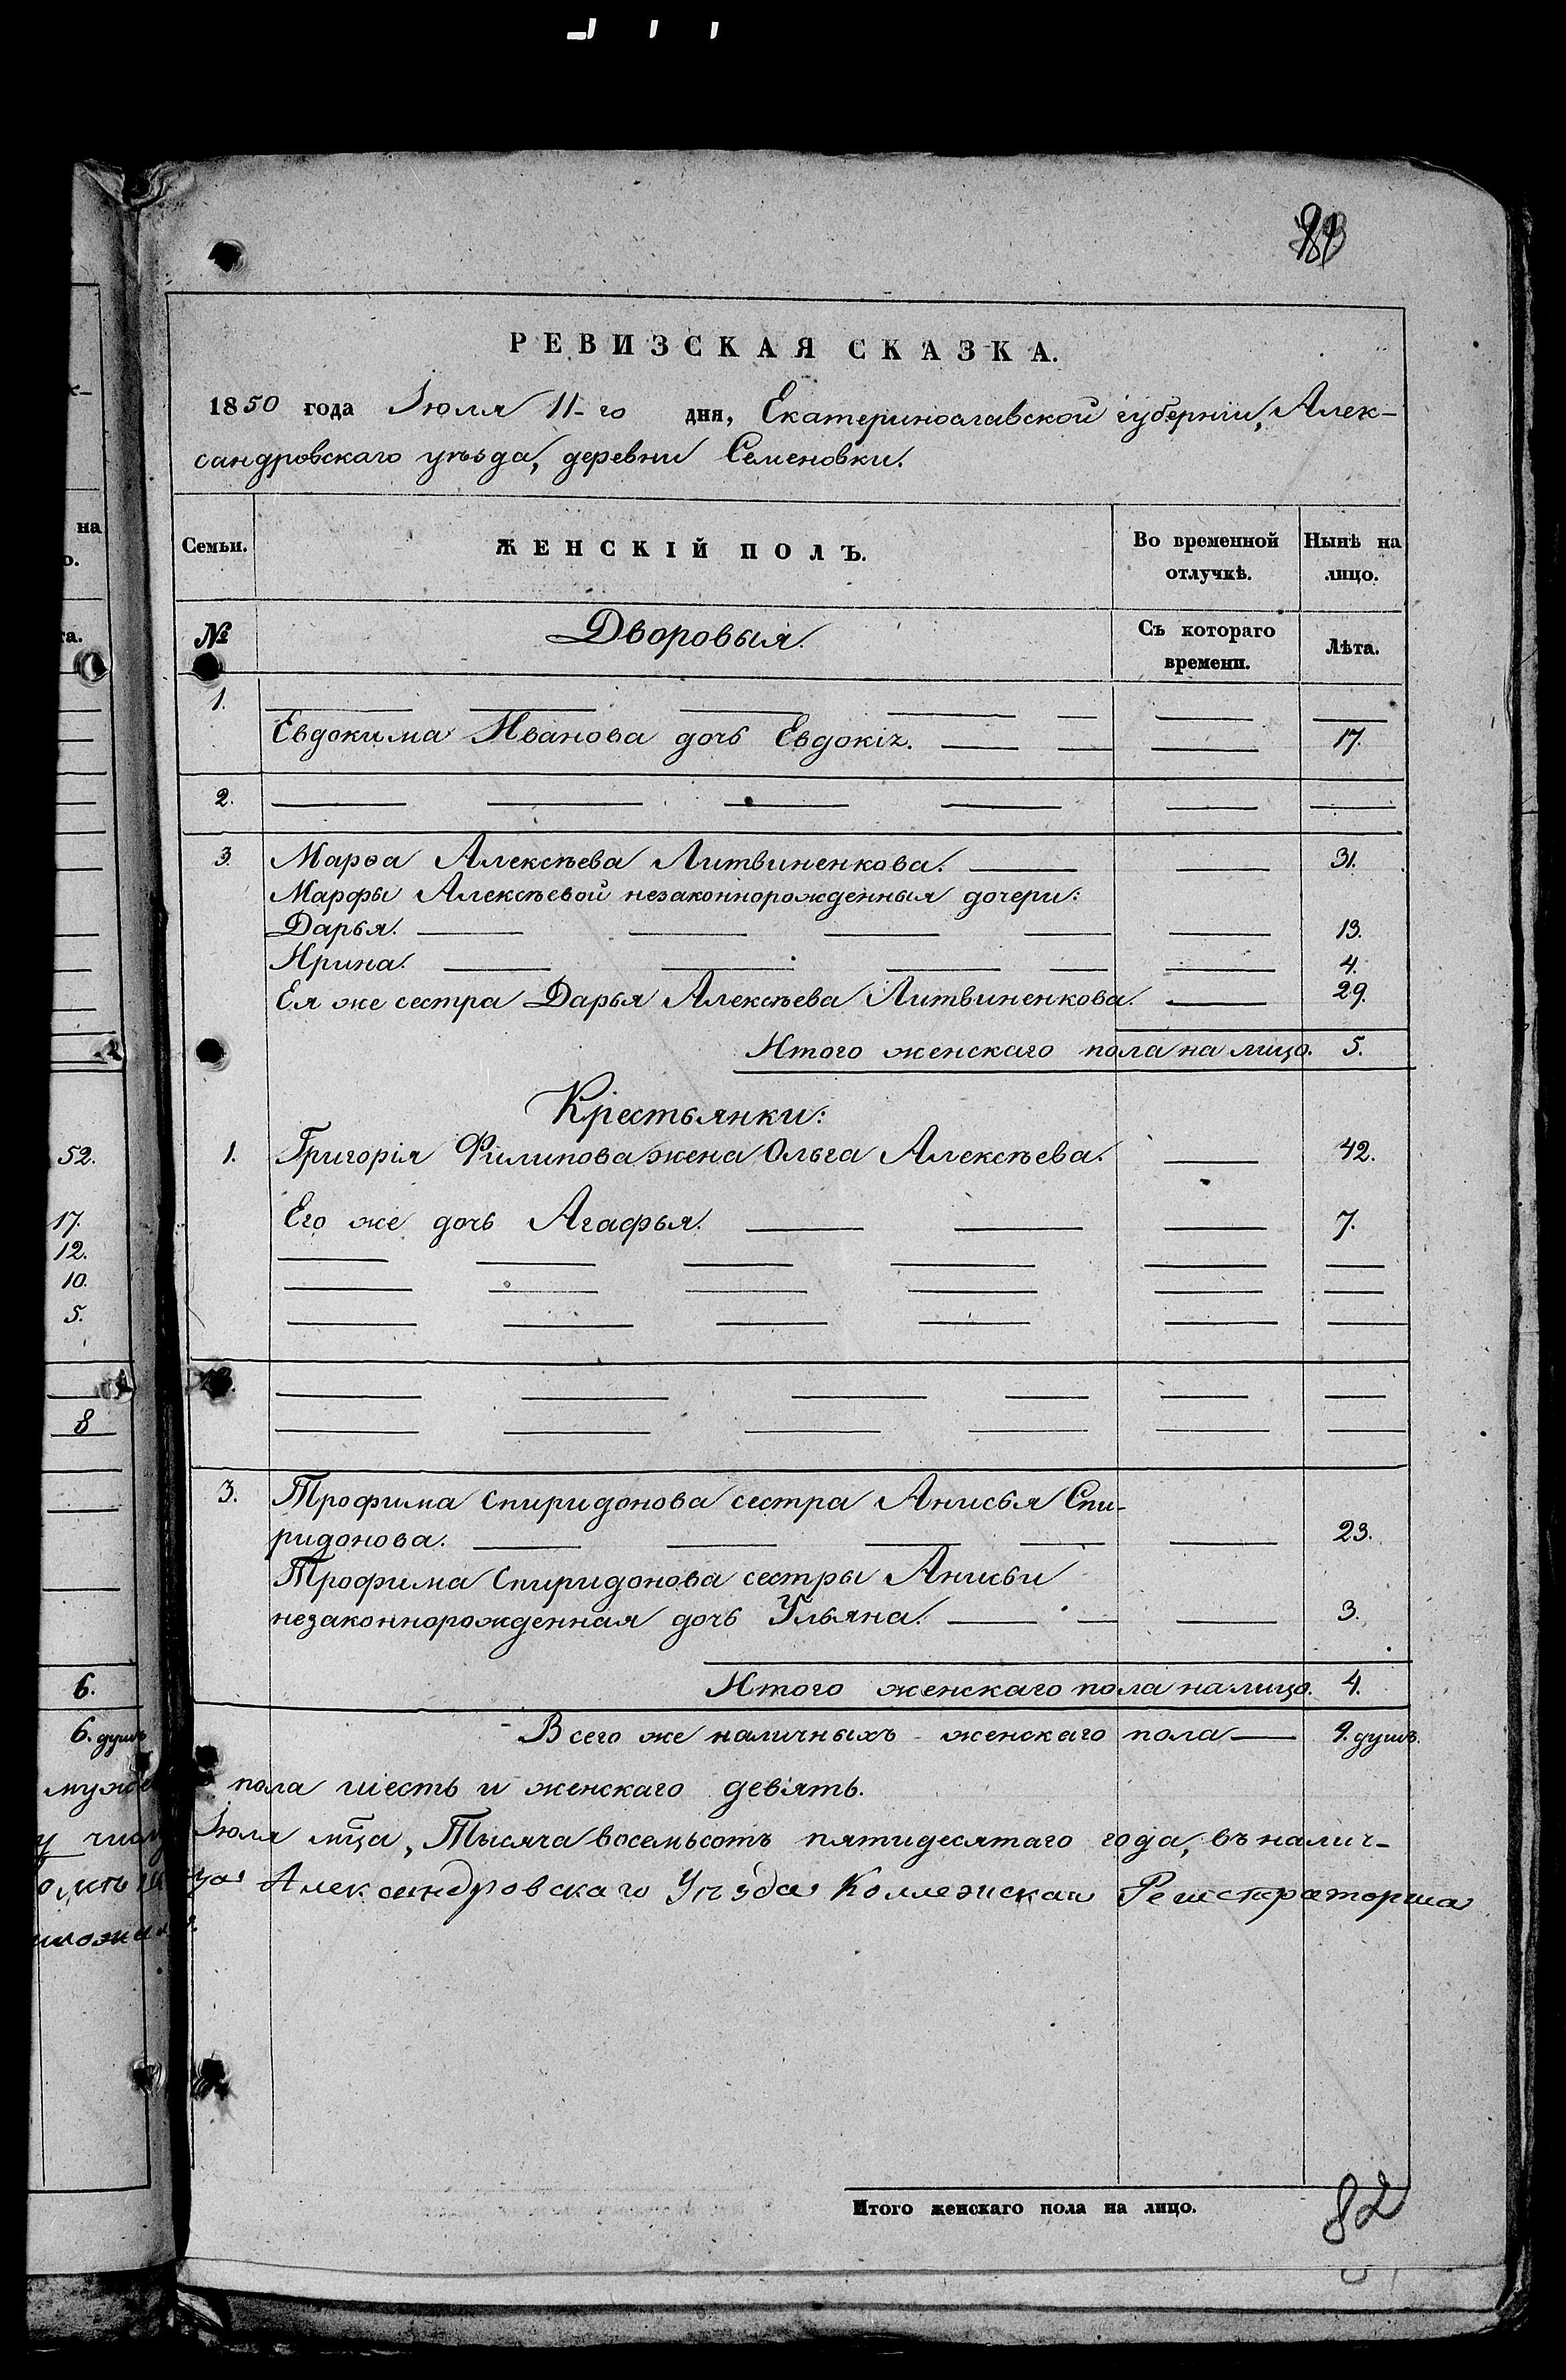 РЕВИЗСКАЯ СКАЗКА.
1850 года Іюля 11-го дня, Екатеринославской губерніи, Алек-
сандровскаго уѣзда, деревни Семеновки.
на
Семьи.
ЖЕНСКІЙ ПОЛЪ.
Во временной отлучкѣ.
Нынѣ на лицо.
о.
та.
№
Дворовыя.
Съ котораго времени.
Лѣта.
1.
Евдокима Иванова дочь Евдокія. 17.
2.
3. Марѳа Алексѣева Литвиненкова. 31.
Марфы Алексѣевой незаконнорожденныя дочери:
Дарья. 13.
Ирина. 4.
Ея же сестра Дарья Алексѣева Литвиненкова. 29.
Итого женскаго пола на лицо. 5.
Крестьянки:
52.
1. Григорія Филипова жена Ольга Алексѣева. 42.
17.
Его же дочь Агафья. 7.
12.
10.
5.
8
3. Трофима Спиридонова сестра Анисья Спи-
ридонова. 23.
Трофима Спиридонова сестры Анисьи
незаконнорожденная дочь Ульяна. 3.
6.
Итого женскаго пола на лицо. 4.
6. душъ
Всего же наличныхъ женскаго пола 9. душъ.
пола шесть и женскаго девять.
Іюля мца, Тысяча восемьсотъ пятидесятаго года, въ налич-
Александровскаго Уѣзда Коллежская Регистраторша
Итого женскаго пола на лицо.
82